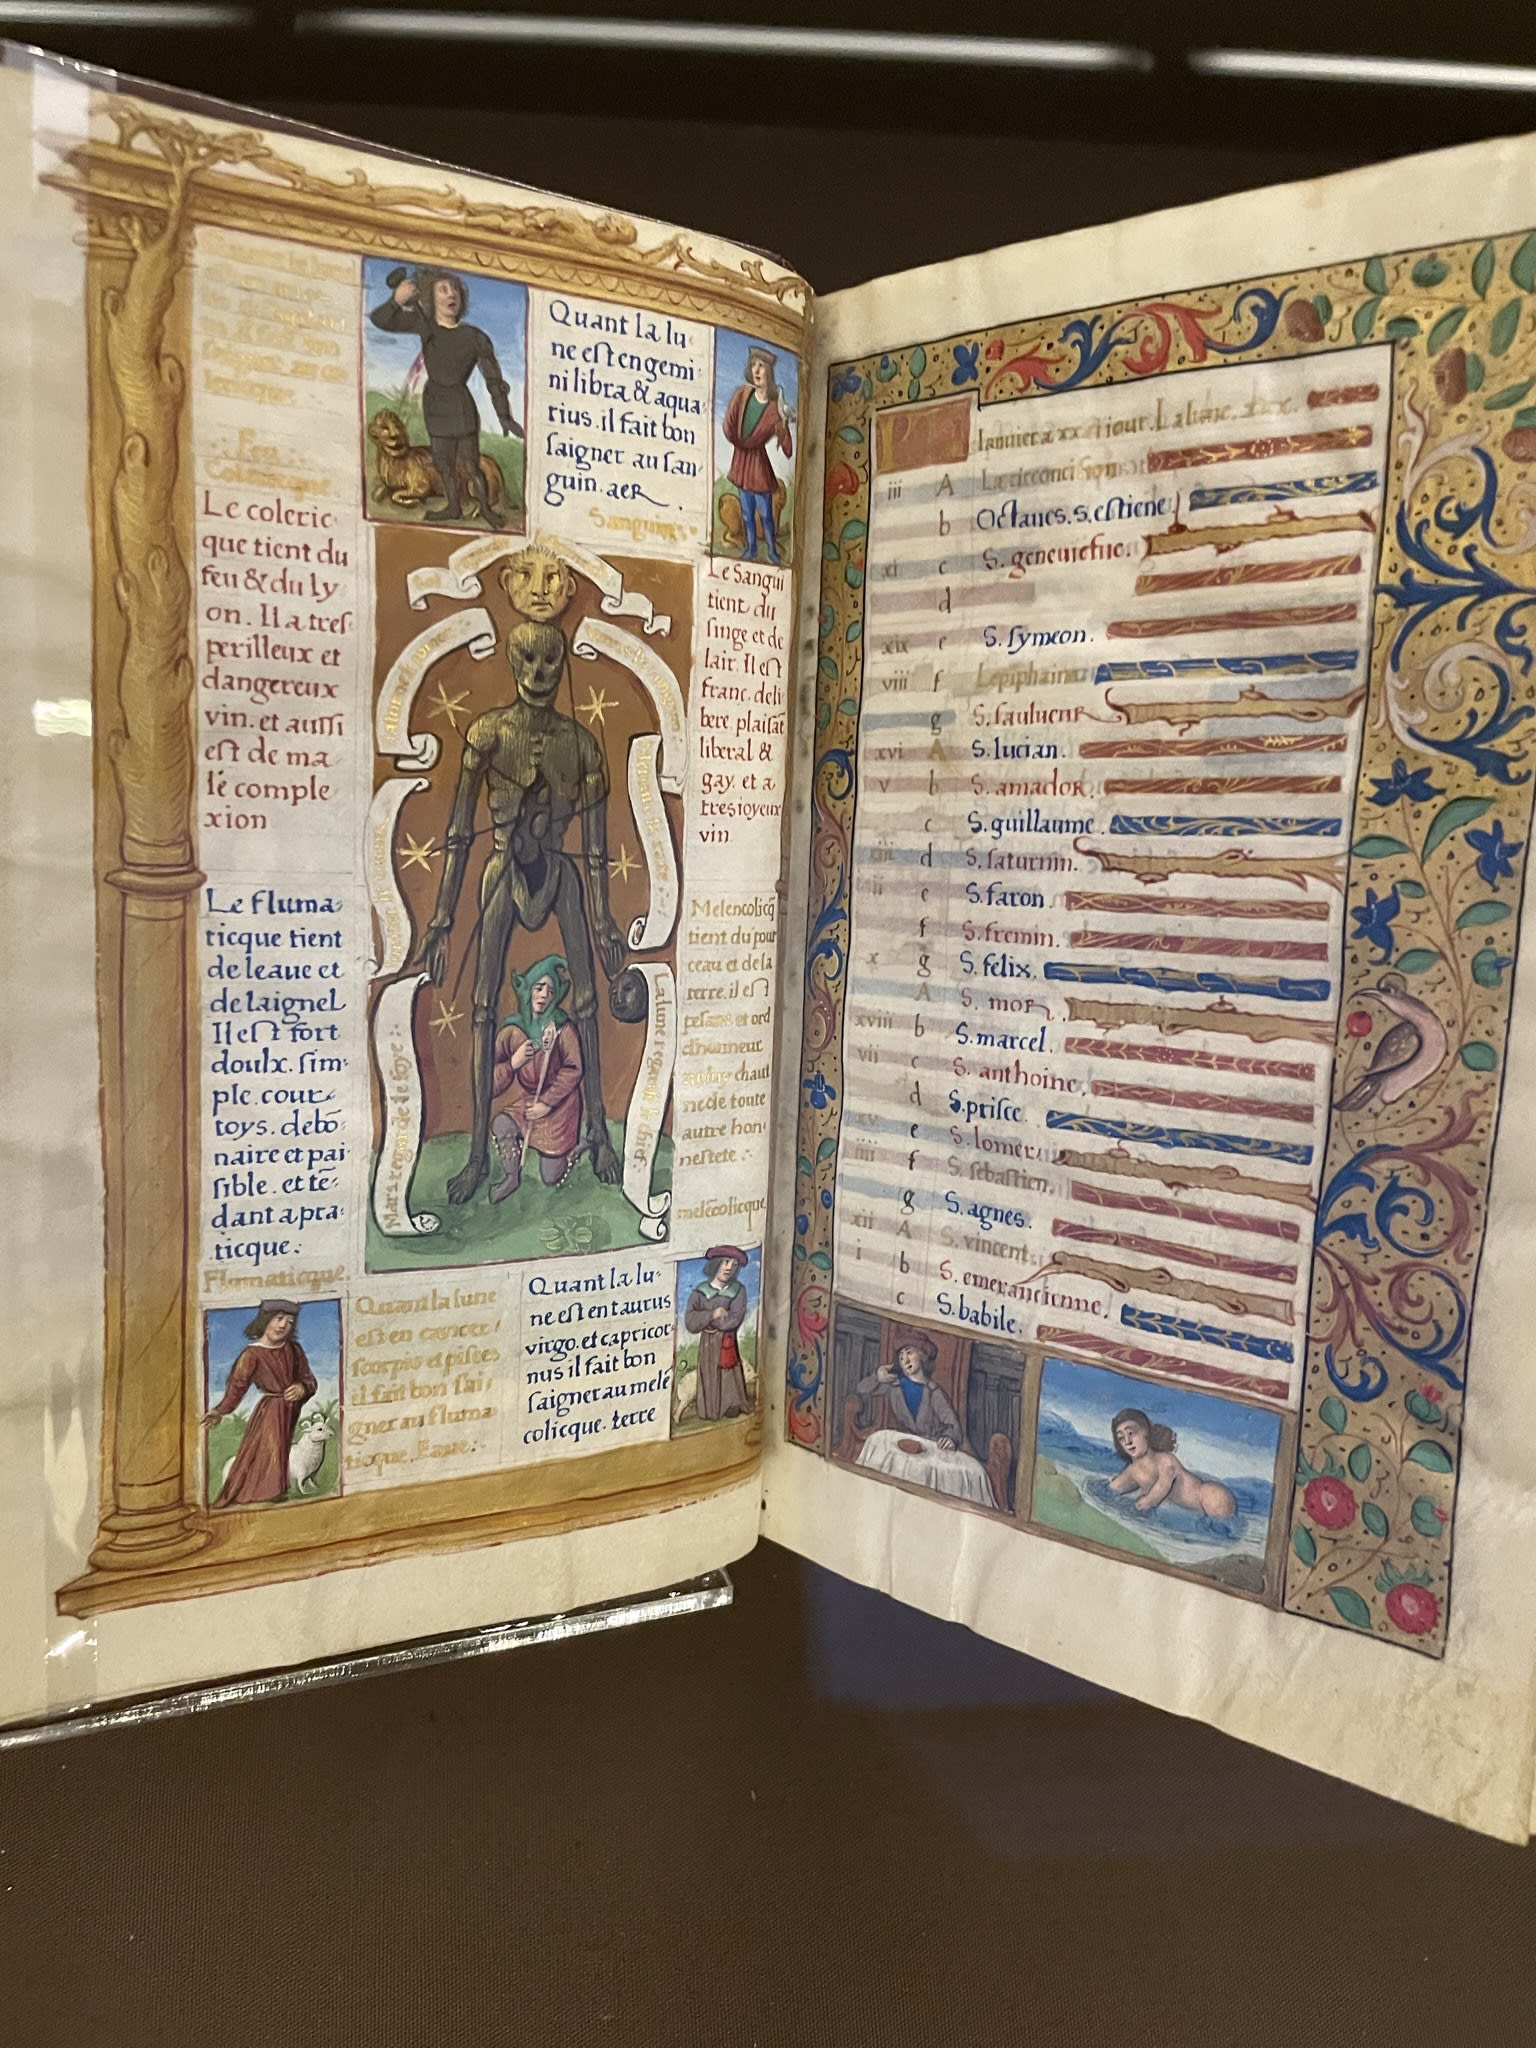 Quant la lu
ne est en gemi
ni libra & aqua
rius. il fait bon
saigner au san
guin. aer
Sanguin
Colerique
Le coleric
que tient du
feu & du ly
on. Il a tres
perilleux et
dangereux
vin. et aussi
est de ma
le comple
xion
Le Sangui
tient du
singe et de
lair. Il est
franc. deli
bere. plaisāt
liberal &
gay. et a
tresioyeux
vin.
Le fluma
ticque tient
de leaue et
de laignel
Il est fort
doulx. sim
ple. cour
toys. debō
naire et pai
sible. et tē
dant a pra
ticque.
Flumaticque.
Melencolicq̄
tient du pour
ceau et de la
terre. il est
pesant et ord
dhonneur
chault
ne de toute
autre hon
nestete.
melēcolicque
Mars regarde le foye
La lune regarde le chief
Quant la lune
est en cancer
scorpio et pisces
il fait bon sai
gner au fluma
ticque. Eaue.
Quant la lu
ne est en taurus
virgo. et capricor
nus il fait bon
saigner au melē
colicque. terre
Ianuier a xxxi iour. La lune. xxx.
iii A La circoncision
b Octaues. s. estiene
xi c S. geneuiefue
d
xix e S. symeon.
viii f Lepiphaine
g S. saulueur
xvi A S. lucian.
v b S. amador.
c S. guillaume.
xiii d S. saturnin.
ii e S. faron.
f S. fremin.
x g S. felix.
A S. mor
xviii b S. marcel.
vii c S. anthoine.
d S. prisce.
xv e S. lomer
iiii f S. sebastien.
g S. agnes.
xii A S. vincent
i b S. emerancienne.
c S. babile.